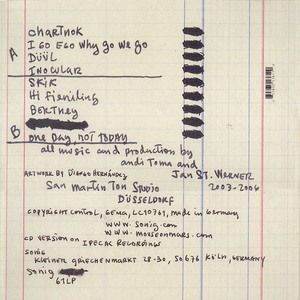 chartnok
I GO EGO Why go we go
A
DÜÜL
INOCULAR
SKIK
Hi Fienilin
BERTNEY
B
one Day not TODAY
all music and production by
andi Toma and
Jan St. WERNER
ARTWORK BY Diango HERNÁNDEZ
San Martin Ton Studio
2003-2006
DÜSSELDORF
COPYRIGHT CONTROL, GEMA, LC10761, made in Germany
www.sonig.com
www.mouseonmars.com
CD VERSION ON IPECAC RECORDINGS
SONIG
KLEINER GRIECHENMARKT 28-30, 50676 KÖLN, GERMANY
Sonig
61LP